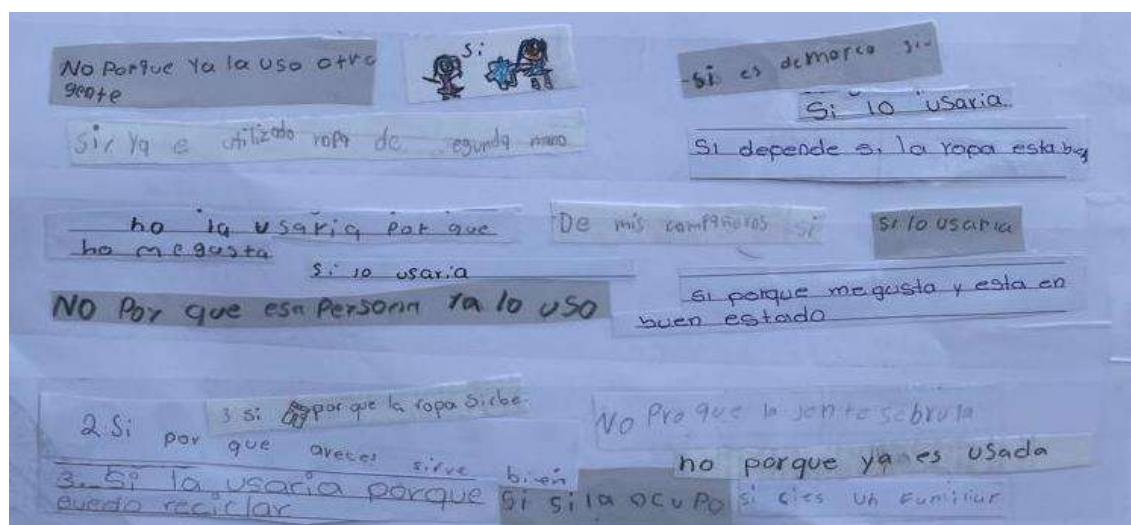 No Porque Ya la uso otra
gente
si
si es demarca si
Si lo usaria
Si, ya e utilizado ropa de segunda mano
Si depende si la ropa esta
no la usaria por que
no me gusta
De mis compañeros si
si lo usaria
si lo usaria
NO Por que esa Persona Ya lo uso
si porque me gusta y esta en
buen estado
2 Si por que aveces sirve bien
3 si porque la ropa sirbe.
No Pro que la jente
no porque ya es usada
3. Si la usaria porque
puedo reciclar
Si si la ocupo
si es un Familiar